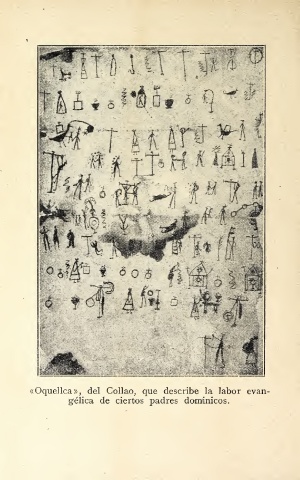 «Oquellca», del Collao, que describe la labor evan-
gélica de ciertos padres dominicos.